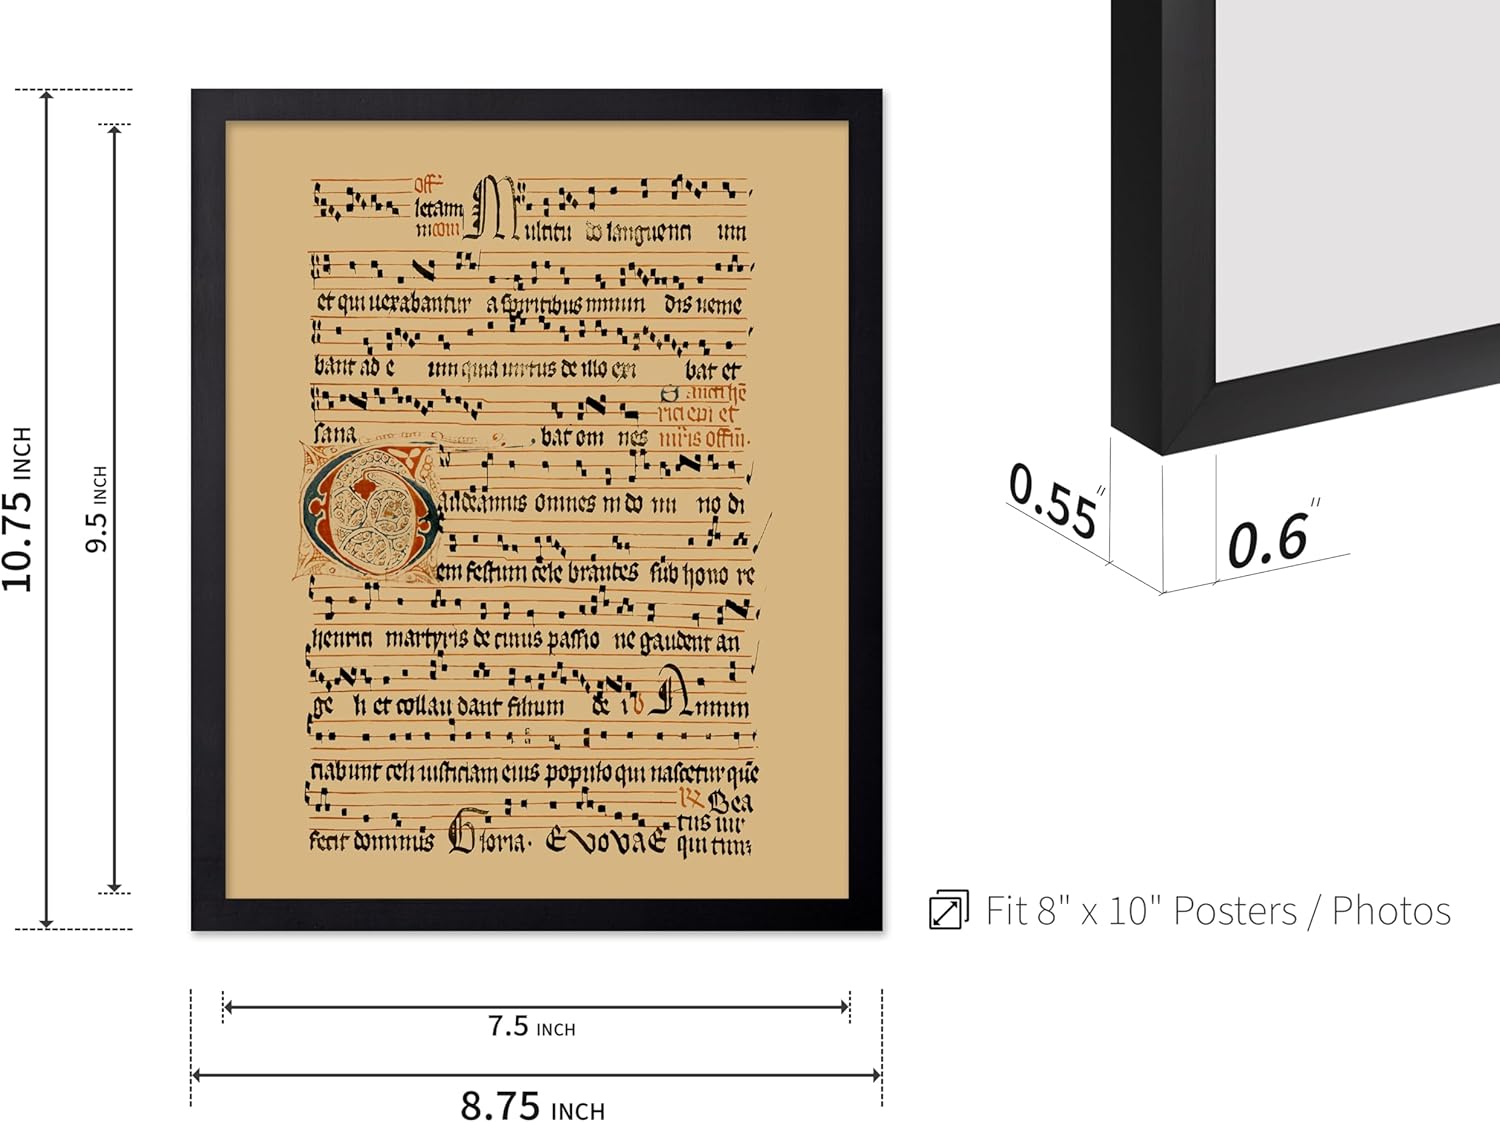 10.75 INCH
9.5 INCH
Off
letamı
ultitu do languenti um
et qui uexabantur a spiritibus inmun dis ueme
bant ad e um quia uirtus de illo exi bat et
Sancti he
rici epi et
sana bat om nes mris offm.
audeamus omnes in do mi no di
em festum cele brantes sub hono re
henrici martyris de cuius passio ne gaudent an
ge li et collau dant filium de i Annun
ciabunt celi iusticiam eius populo qui nascetur que
Bea
tus uir
fecit dominus Gloria. EVOVAE qui tim
7.5 INCH
8.75 INCH
0.55"
0.6"
Fit 8" x 10" Posters / Photos